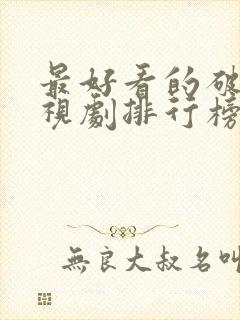 最好看的破
視劇排行榜
無良大叔名叫